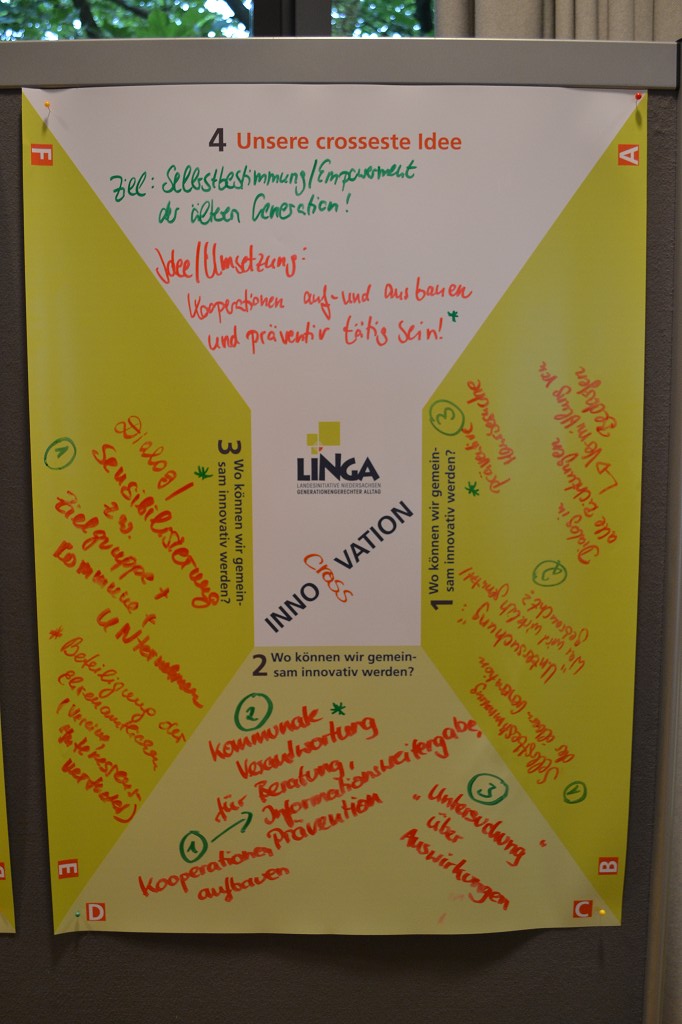 4 Unsere crosseste Idee
F
A
Ziel: Selbstbestimmung/Empowerment
der älteren Generation!
Idee/Umsetzung:
Kooperationen auf- und ausbauen
und präventiv tätig sein! *
LINGA
LANDESINITIATIVE NIEDERSACHSEN
GENERATIONENGERECHTER ALLTAG
INNO cross VATION
3 Wo können wir gemein-
sam innovativ werden?
1
Dialog/
Sensibilisierung *
zw.
Zielgruppe +
Kommune +
Unternehmen
* Beteiligung der
Ehrenamtlichen
(Vereine
1 Wo können wir gemein-
sam innovativ werden?
3
präventive
Hausbesuche *
Dialog in
alle Richtungen
2
"Untersuchung:
Was wird wirklich
gebraucht?
Selbstbestimmung
der älteren Generation
1
2 Wo können wir gemein-
sam innovativ werden?
2
Kommunale *
Verantwortung
für Beratung,
Informationsweitergabe,
Prävention
1
Kooperationen
aufbauen
3
"Untersuchung"
über
Auswirkungen
E
B
D
C